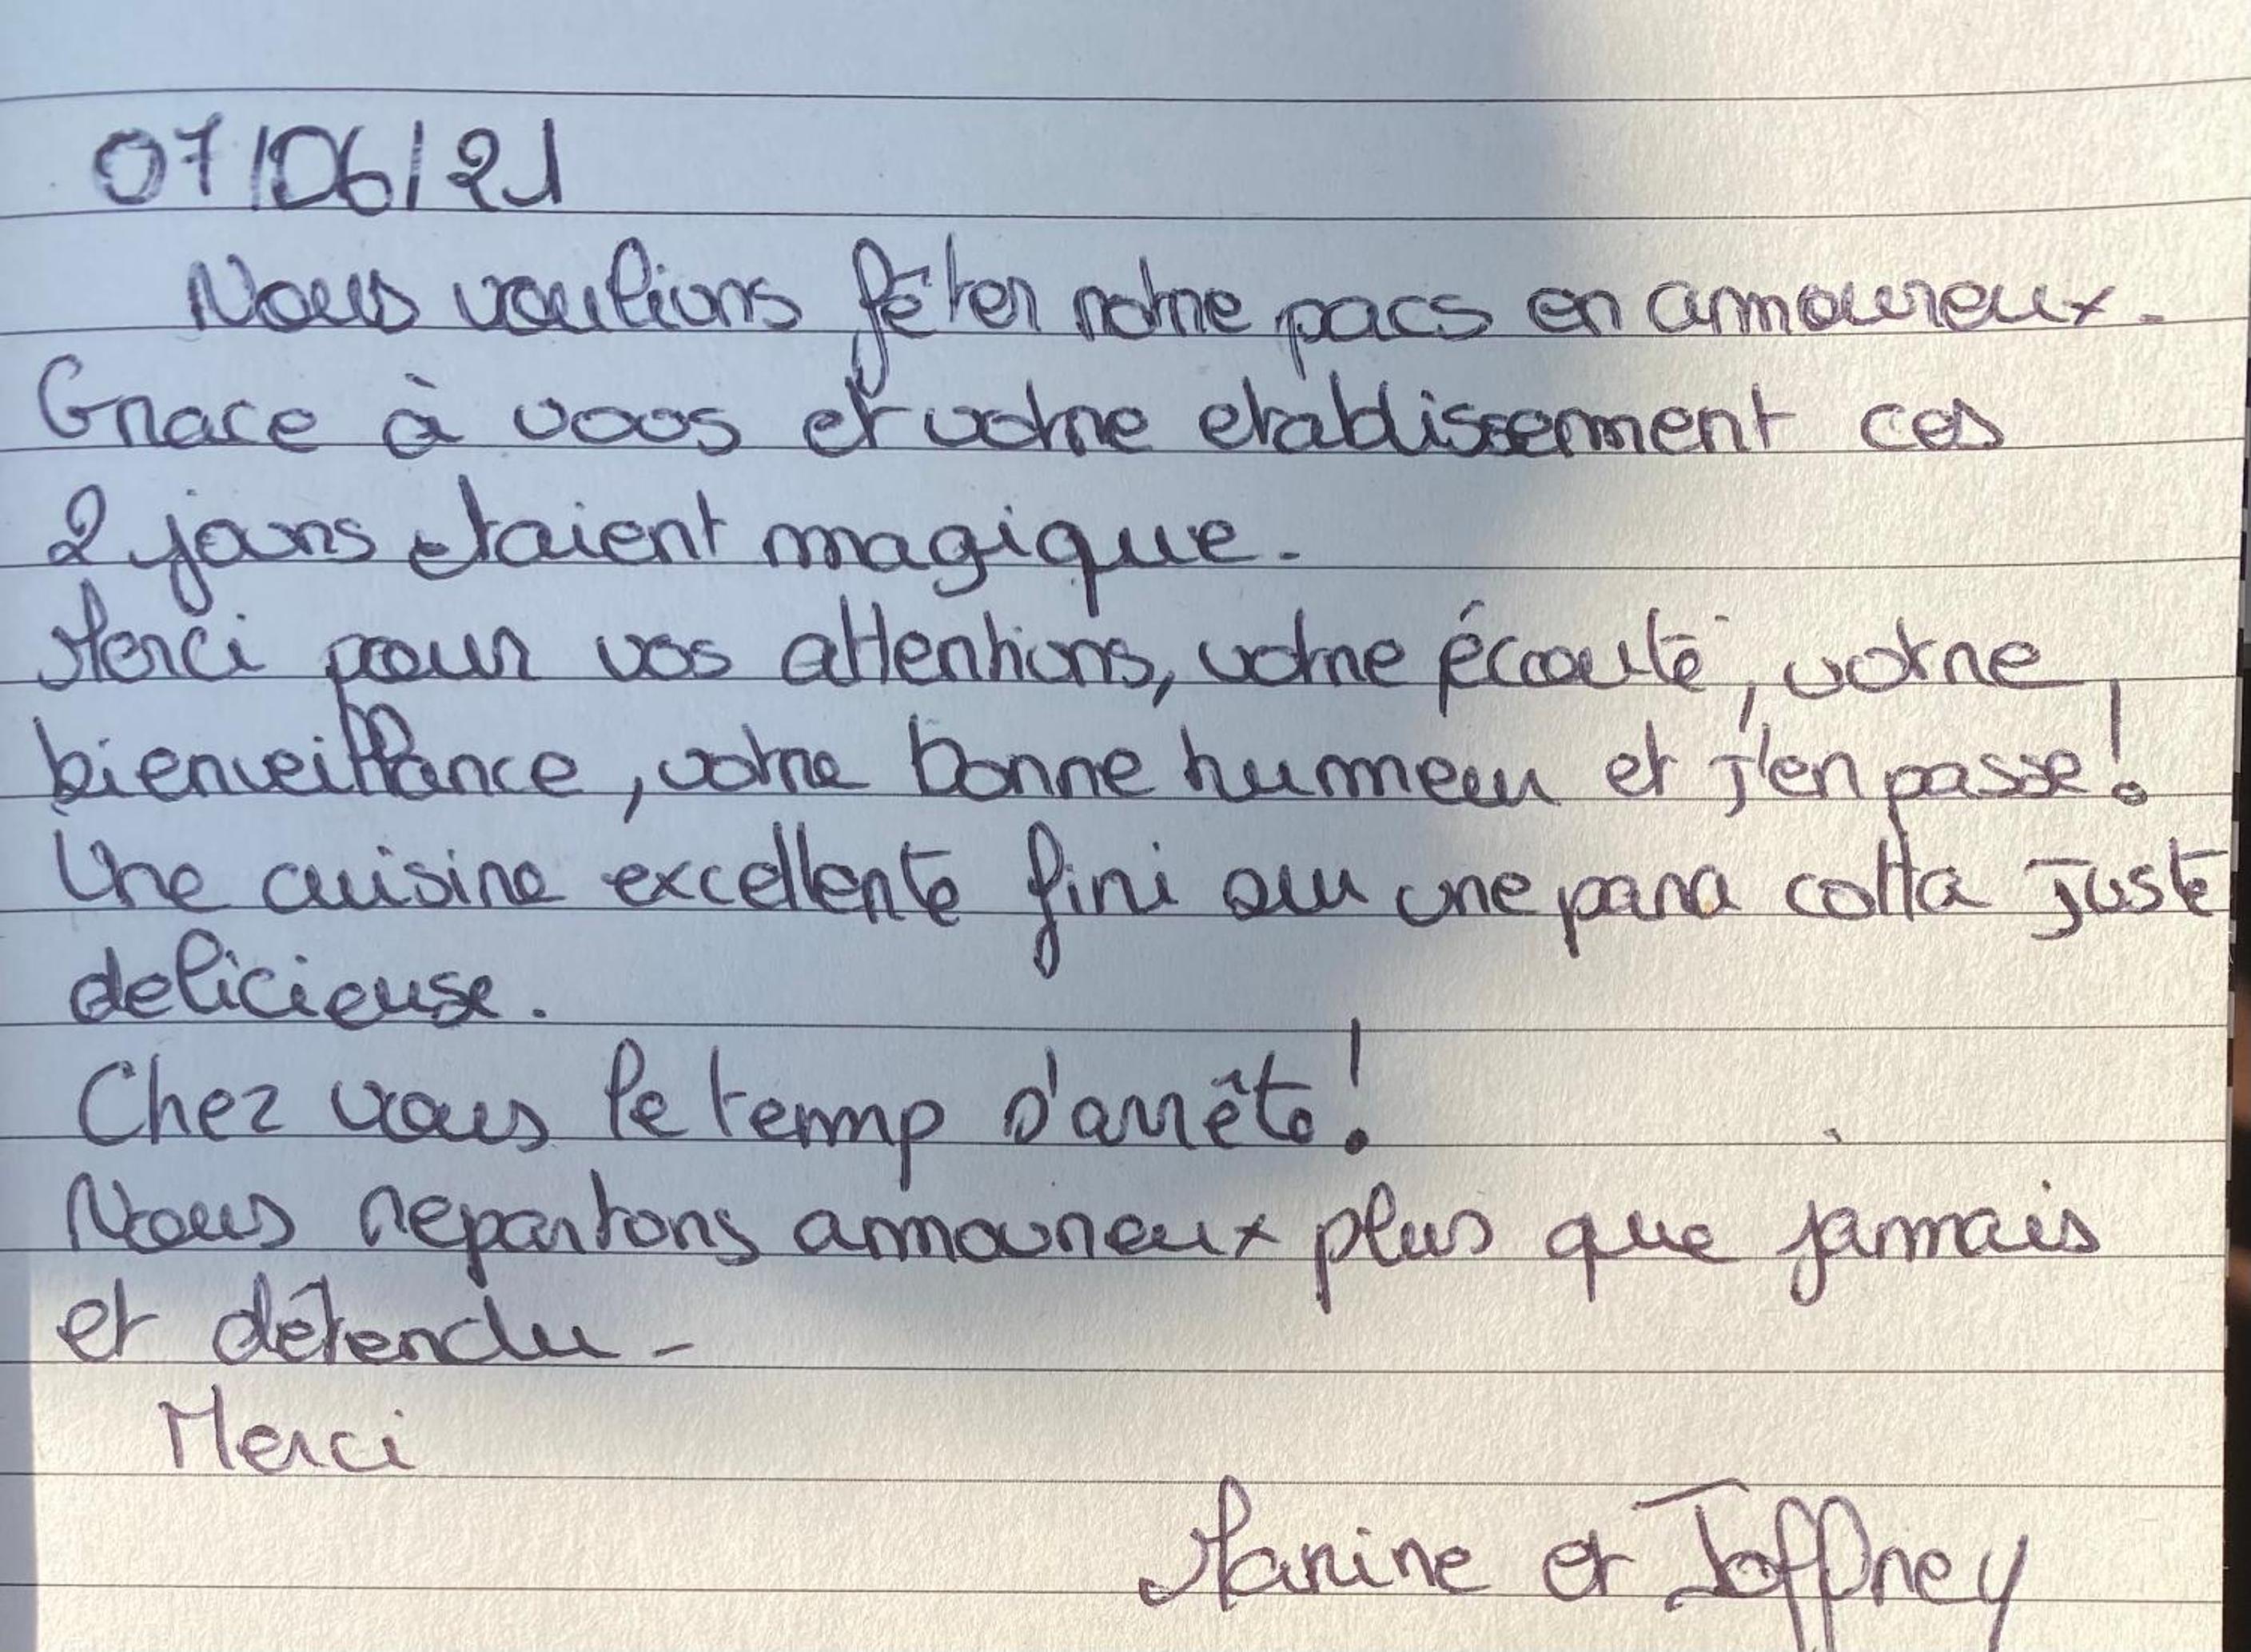 07/06/21
Nous voulions fêter notre pacs en amoureux.
Grace à vous et votre etablissement ces
2 jours etaient magique.
Merci pour vos attentions, votre écoute, votre
bienveillance, votre bonne humeur et j'en passe!
Une cuisine excellente fini sur une pana cotta juste
delicieuse.
Chez vous le temp s'arrête!
Nous repartons amoureux plus que jamais
et détendu.
Merci
Marine et Joffrey